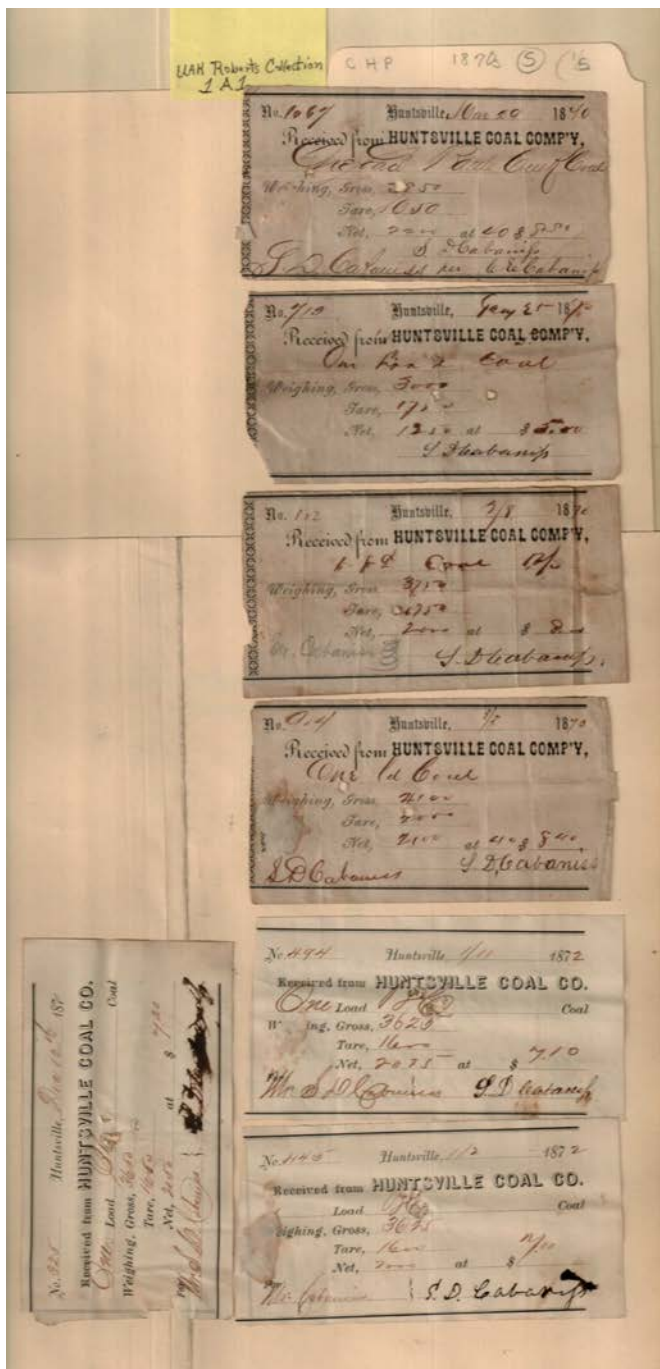 UAH Roberts Collection
1 A 1
CHP 1870s (5) (15
No. 1067 Huntsville, Mar 20 1870
Received from HUNTSVILLE COAL COMP'Y,
One Load Coal
Weighing, Gross, 2850
Tare, 1050
Net, at 40 $
S D Cabaniss
S D Cabaniss per Cabaniss
No. Huntsville, 18
Received from HUNTSVILLE COAL COMP'Y,
Coal
Weighing, Gross, 3000
Tare, 1750
Net, 1250 at $ 5.00
S D Cabaniss
No. 102 Huntsville, 2/8 1870
Received from HUNTSVILLE COAL COMP'Y,
Coal
Weighing, Gross, 3750
Tare,
Net, 2000 at $
Mr. Cabaniss S. D Cabaniss.
No. Huntsville, 1870
Received from HUNTSVILLE COAL COMP'Y,
One Ld Coal
Weighing, Gross, 4100
Tare, 2000
Net, 2100 at 40 $ 8.40
S D Cabaniss S. D, Cabaniss
No. 494 Huntsville 1/11 1872
Received from HUNTSVILLE COAL CO.
One Load Coal
W ing, Gross, 3625
Tare, 1600
Net, at $ 710
Mr S D Cabaniss S. D Cabaniss
No. 445 Huntsville, 1/2 1872
Received from HUNTSVILLE COAL CO.
Load Coal
eighing, Gross, 3625
Tare, 1600
Net, 2000 at $ 700
Mr Cabaniss S. D. Cabaniss
No. 325 Huntsville, Dec 12th 187
Received from HUNTSVILLE COAL CO.
One Load Coal
Weighing, Gross, 3650
Tare, 1600
Net, 2050 at $ 7.20
Mr S D Cabaniss S D Cabaniss